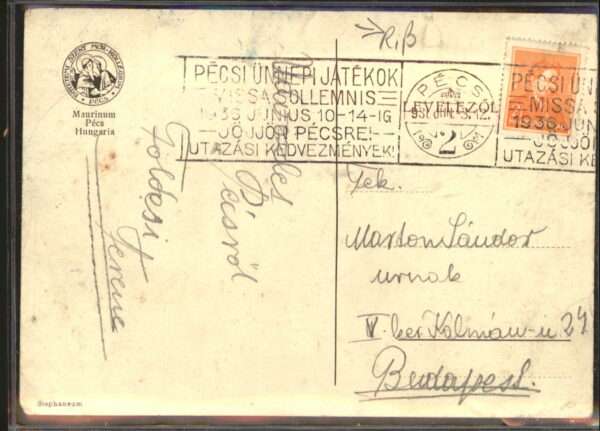 R, B
Maurinum
Pécs
Hungaria
PÉCSI ÜNNEPI JÁTÉKOK
MISSA SOLLEMNIS
1936 JÚNIUS 10-14-IG
JÖJJÖN PÉCSRE!
UTAZÁSI KEDVEZMÉNYEK!
PÉCS
2
LEVELEZŐL
PÉCSI ÜN
MISSA S
1936 JÚN
JÖJJÖ
UTAZÁSI KE
Üdvözlet
Pécsről
Földesi
Ferenc
Tek.
Marton Sándor
urnak
V. ker Kálmán-u 24
Budapest.
Stephaneum